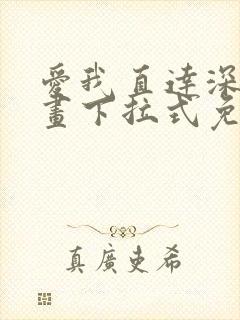 愛我直達深
畫下拉式免
真廣史希